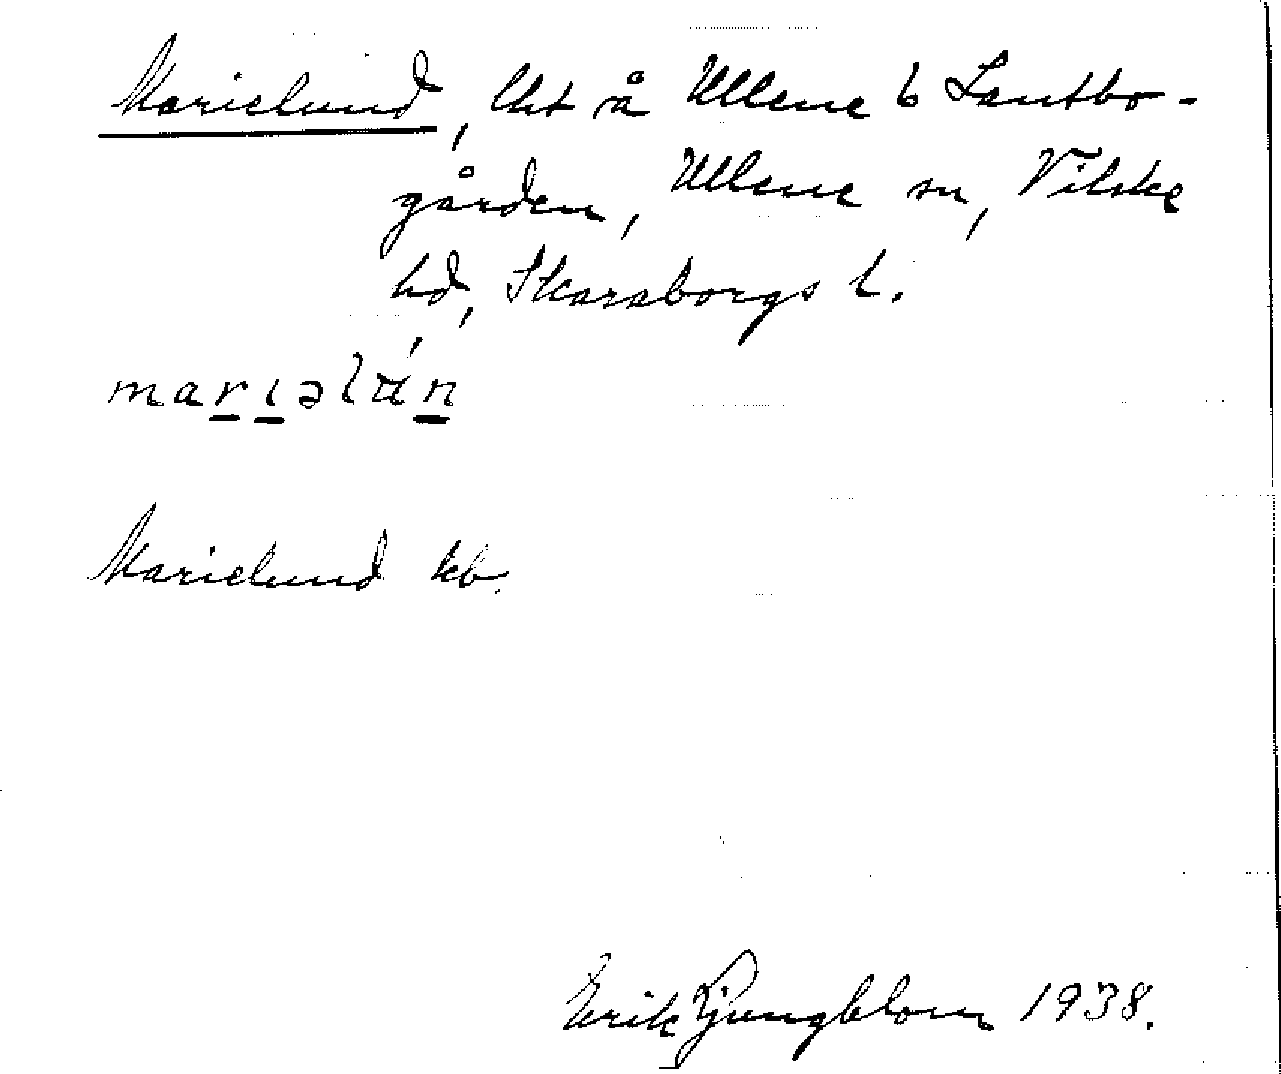 Marielund, lht å Ullene 6 Lantbo-
gården, Ullene sn, Vilske
hd, Skaraborgs l.
marɩəlán
Marielund kb.
Erik Ljungblom 1938.